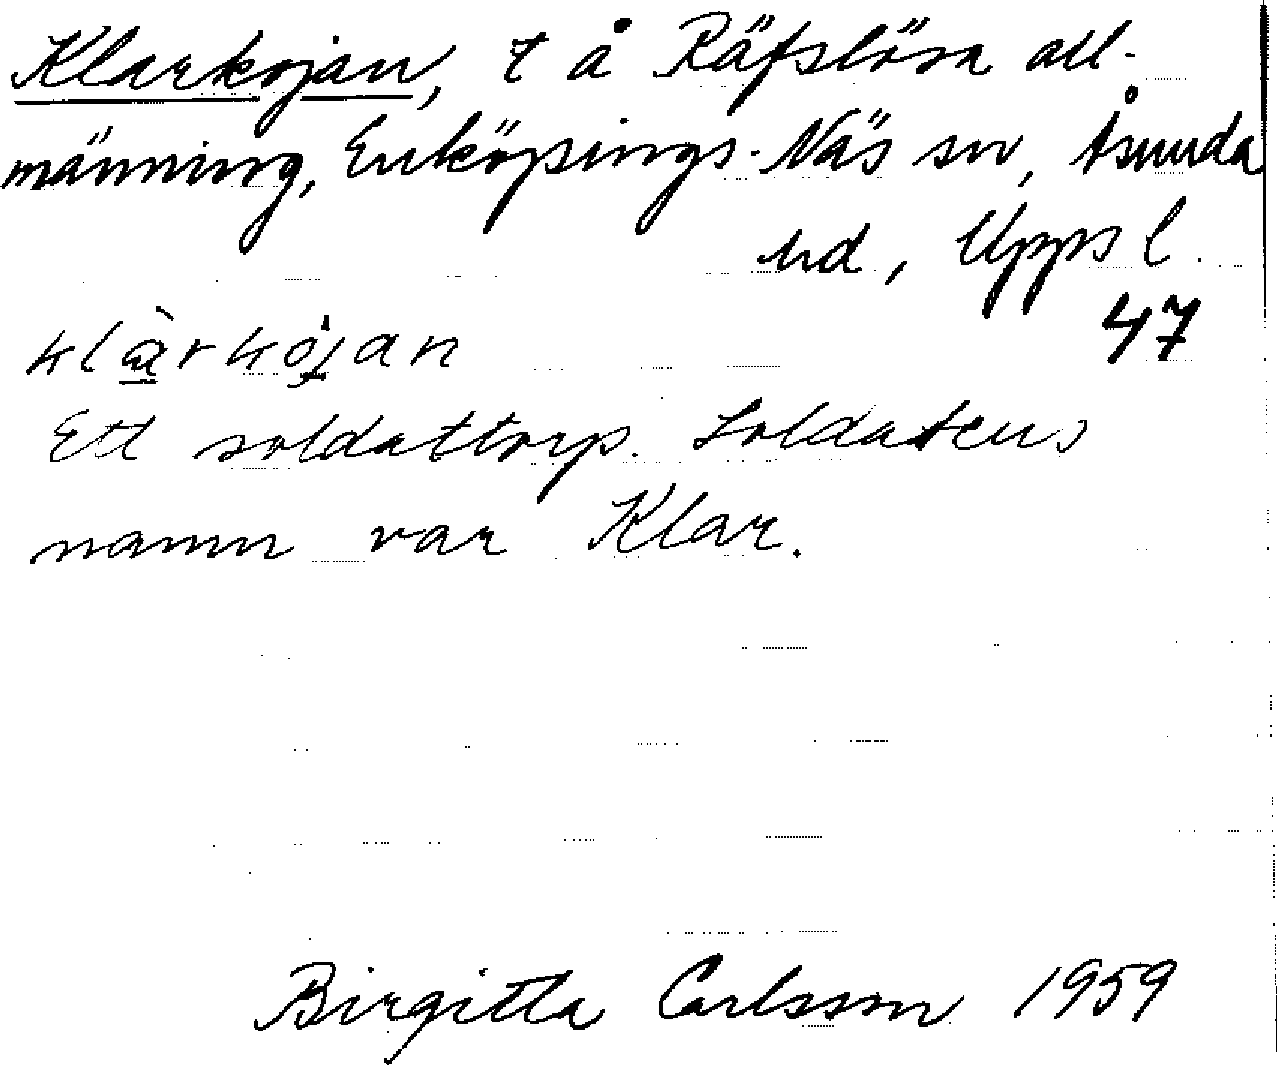 Klarkojan, t å Räfslösa all-
männing, Enköpings-Näs sn, Åsunda
hd, Upps l.
47
klàrkòjan
Ett soldattorp. Soldatens
namn var Klar.
Birgitta Carlsson 1959